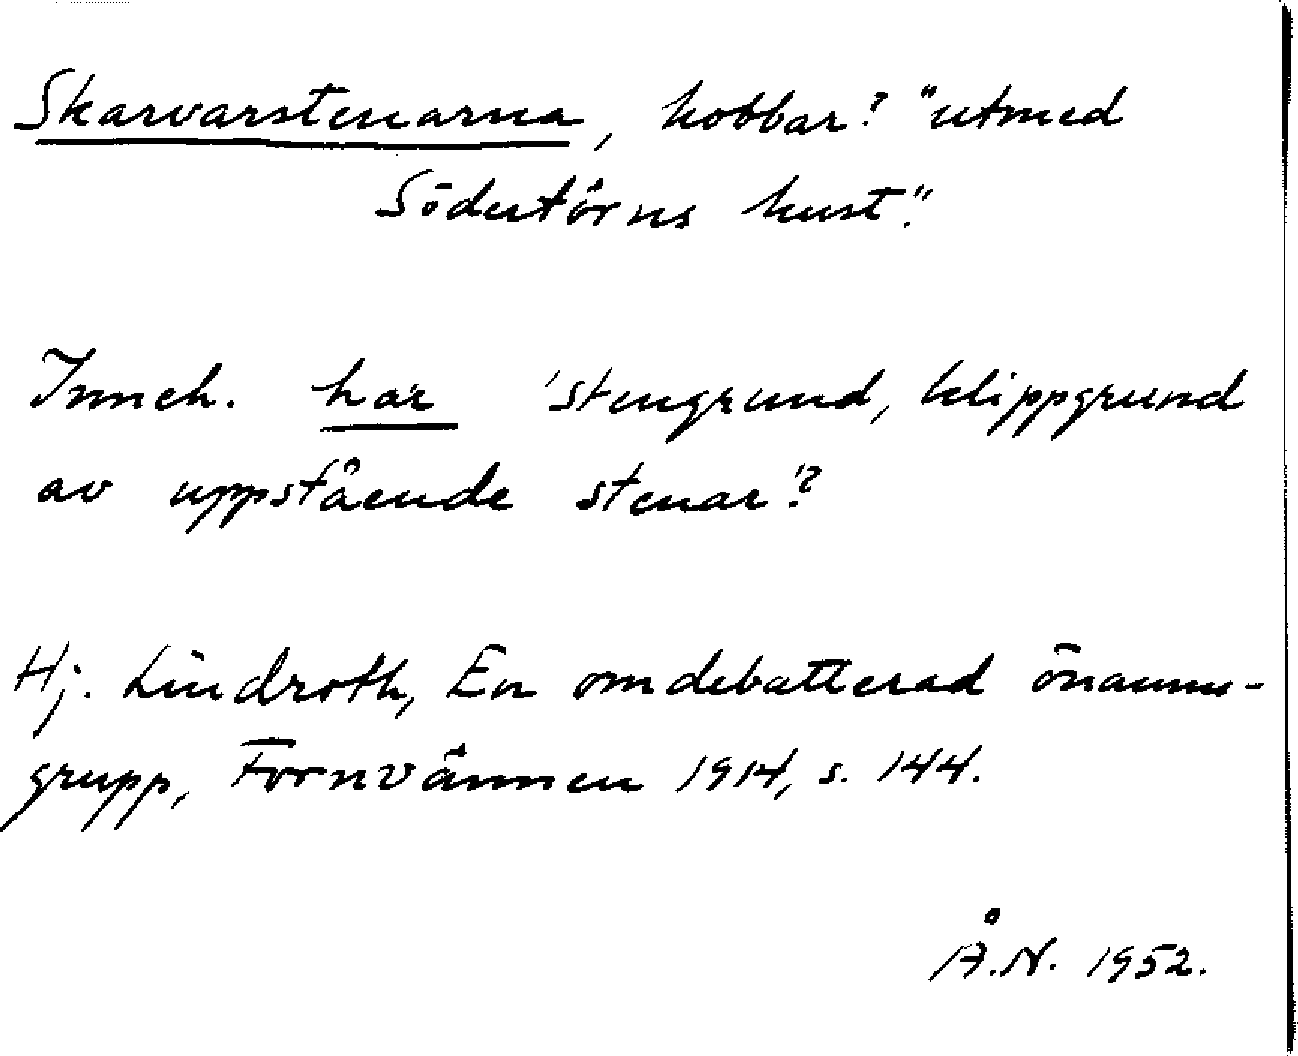 Skarvarstenarna, kobbar? "utmed
Södertörns kust."
Inneh. har 'stengrund, klippgrund
av uppstående stenar'?
Hj. Lindroth, En omdebatterad önamns-
grupp, Fornvännen 1914, s. 144.
Å.N. 1952.